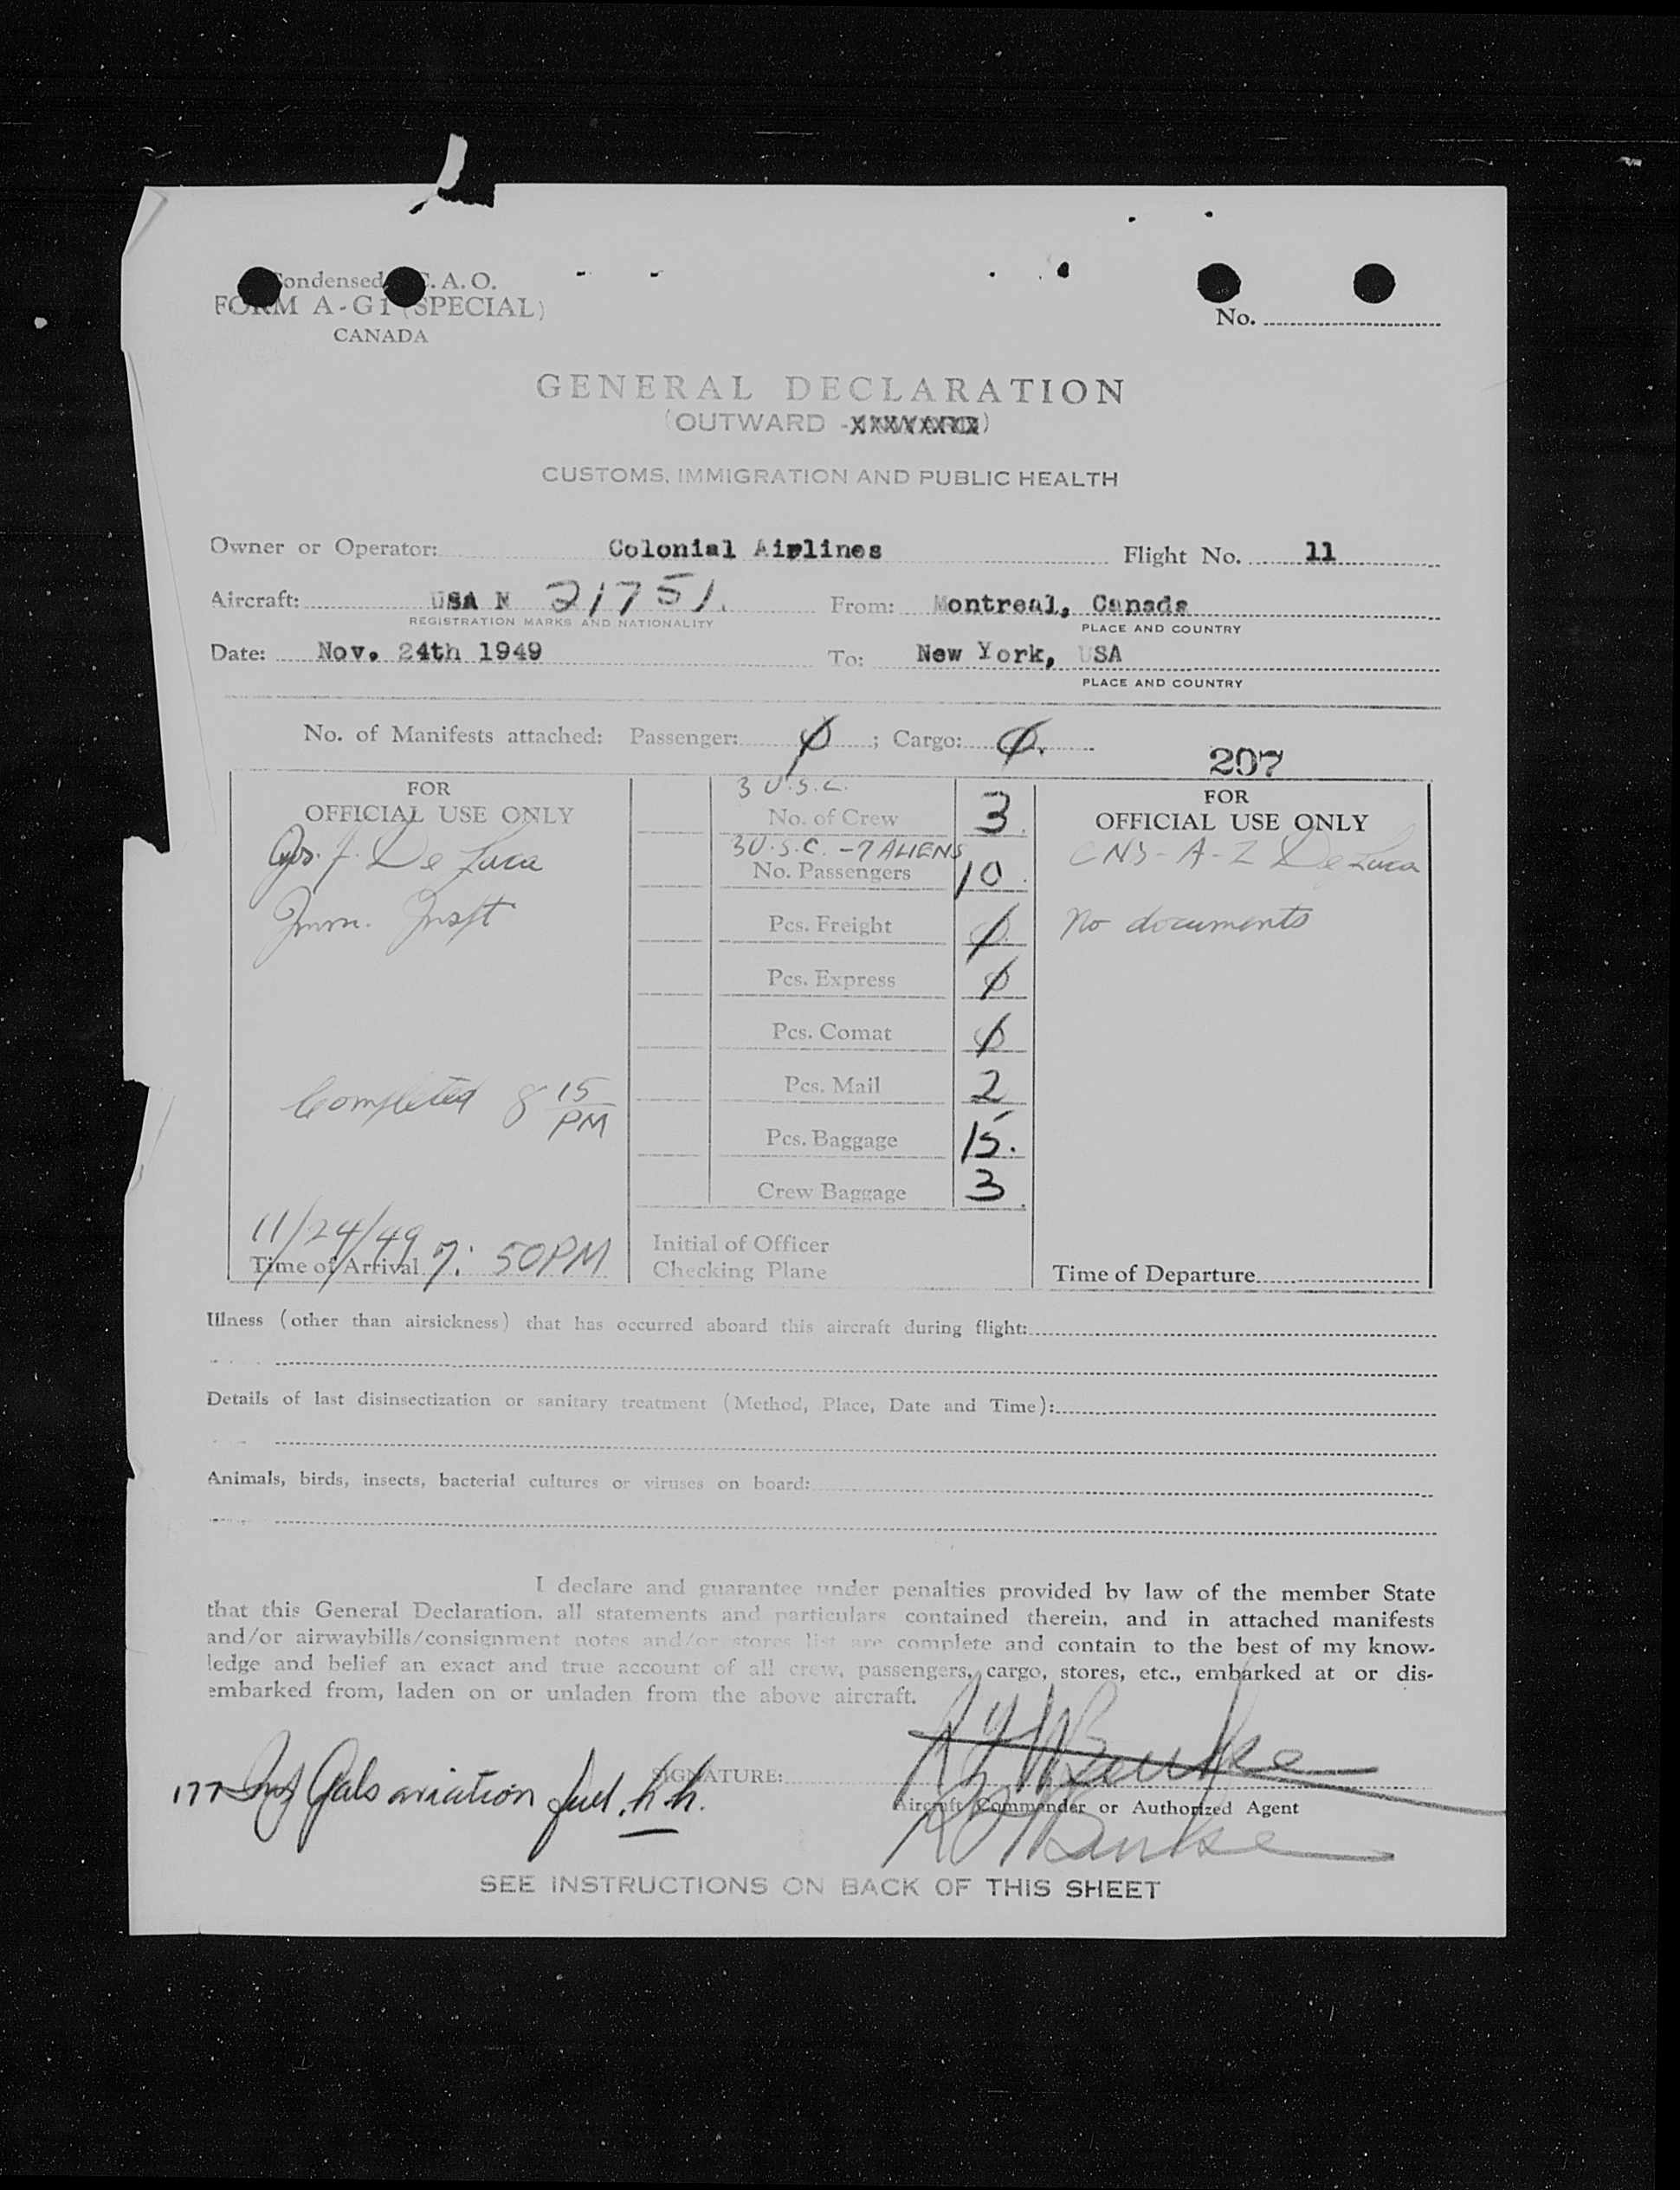 Condensed I.C.A.O.
FORM A-G1 (SPECIAL)
CANADA
No.
GENERAL DECLARATION
(OUTWARD - XXXXXXXX)
CUSTOMS, IMMIGRATION AND PUBLIC HEALTH
Owner or Operator: Colonial Airlines Flight No. 11
Aircraft: USA N 21751. From: Montreal, Canada
REGISTRATION MARKS AND NATIONALITY PLACE AND COUNTRY
Date: Nov. 24th 1949 To: New York, USA
PLACE AND COUNTRY
No. of Manifests attached: Passenger: ∅; Cargo: ∅.
207
FOR
OFFICIAL USE ONLY
J. De Luca
Imm. Inspt
Completed 8 15 PM
11/24/49
Time of Arrival 7:50PM
3 U.S.C.
No. of Crew 3
3 U.S.C. - 7 ALIENS
No. Passengers 10
Pcs. Freight ∅
Pcs. Express ∅
Pcs. Comat ∅
Pcs. Mail 2
Pcs. Baggage 15.
Crew Baggage 3
Initial of Officer
Checking Plane
FOR
OFFICIAL USE ONLY
De Luca
No documents
Time of Departure
Illness (other than airsickness) that has occurred aboard this aircraft during flight:
Details of last disinsectization or sanitary treatment (Method, Place, Date and Time):
Animals, birds, insects, bacterial cultures or viruses on board:
I declare and guarantee under penalties provided by law of the member State
that this General Declaration, all statements and particulars contained therein, and in attached manifests
and/or airwaybills/consignment notes and/or stores list are complete and contain to the best of my know-
ledge and belief an exact and true account of all crew, passengers, cargo, stores, etc., embarked at or dis-
embarked from, laden on or unladen from the above aircraft.
177 Gals aviation fuel. h.h.
SIGNATURE:
Aircraft Commander or Authorized Agent
SEE INSTRUCTIONS ON BACK OF THIS SHEET